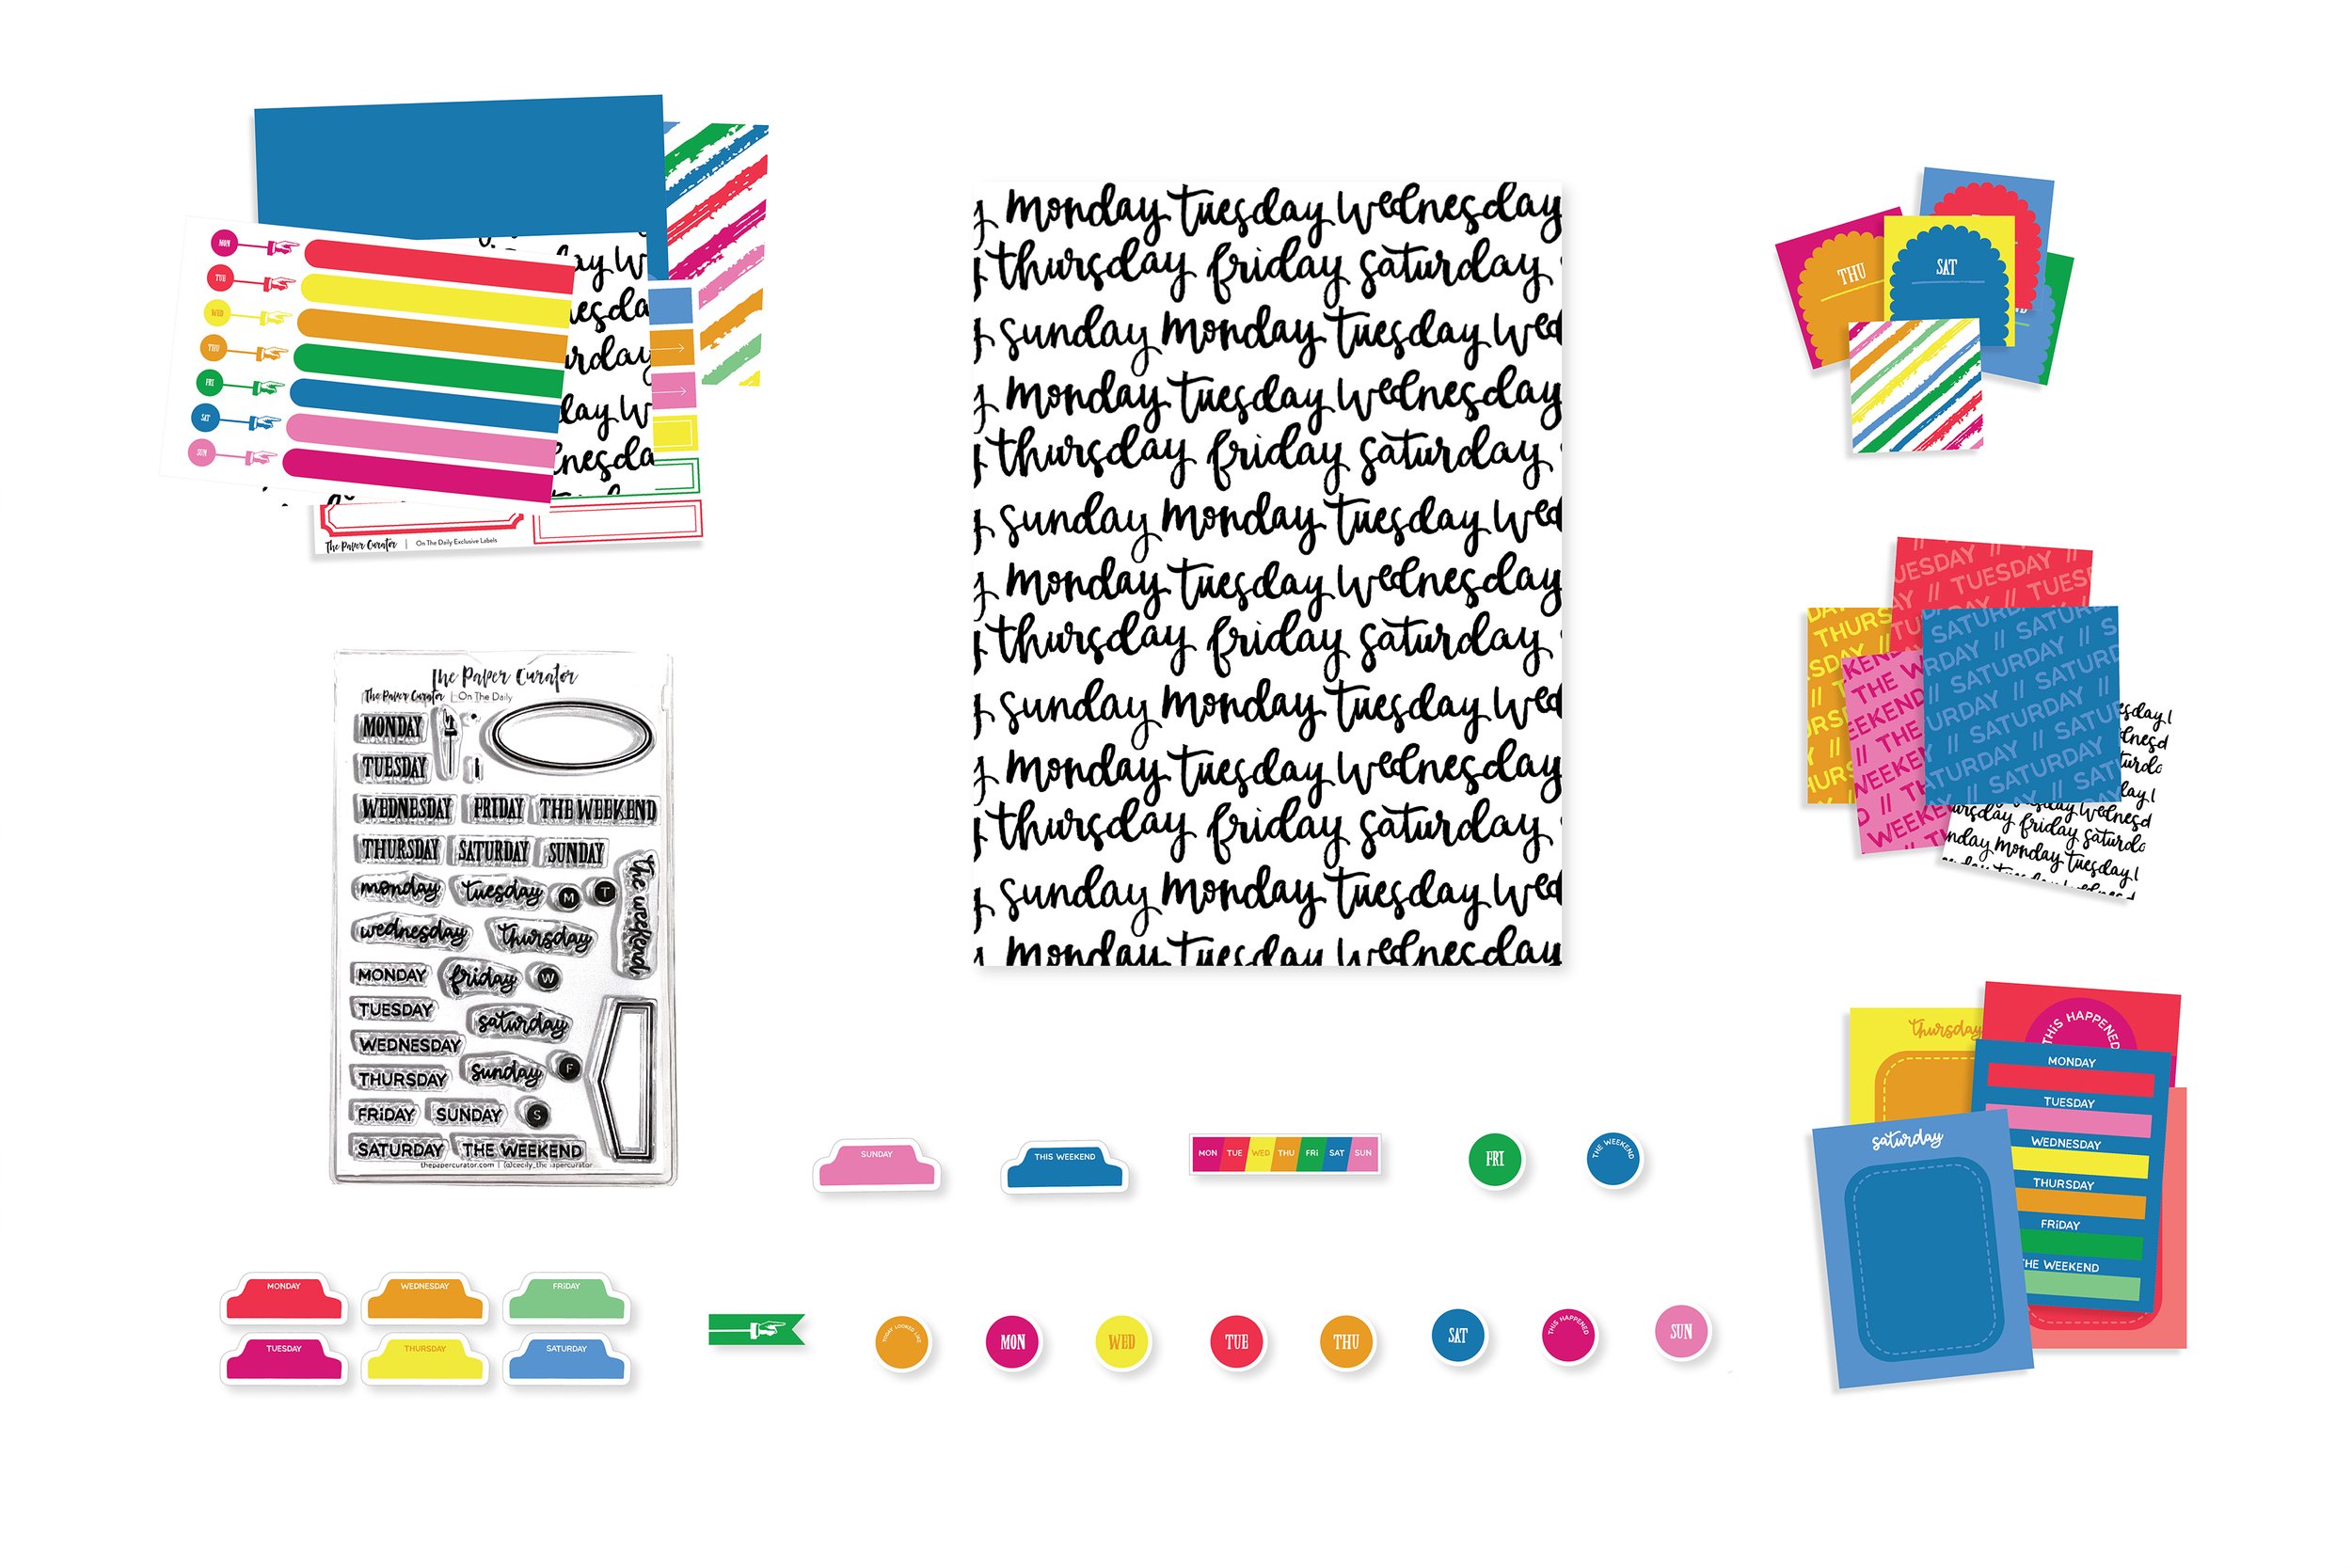 MON
TUE
WED
THU
FRI
SAT
SUN
The Paper Curator | On The Daily Exclusive Labels
monday tuesday wednesday
thursday friday saturday
sunday monday tuesday wed
monday tuesday wednesday
thursday friday saturday
sunday monday tuesday wed
monday tuesday wednesday
thursday friday saturday
sunday monday tuesday wed
monday tuesday wednesday
thursday friday saturday
sunday monday tuesday wed
monday tuesday wednesday
THU
SAT
TUESDAY // TUESDAY //
THURS
SATURDAY // SATURDAY
THE WEEKEND
friday saturd
monday tuesday
The Paper Curator
The Paper Curator | On The Daily
MONDAY
TUESDAY
WEDNESDAY FRIDAY THE WEEKEND
THURSDAY SATURDAY SUNDAY
monday tuesday M T
the weekend
wednesday thursday
MONDAY friday W
TUESDAY
saturday
WEDNESDAY
sunday F
THURSDAY
FRiDAY SUNDAY S
SATURDAY THE WEEKEND
thepapercurator.com | @cecily_the papercurator
thursday
THiS HAPPENED
MONDAY
TUESDAY
WEDNESDAY
THURSDAY
FRiDAY
THE WEEKEND
saturday
SUNDAY
THIS WEEKEND
MON TUE WED THU FRi SAT SUN
FRI
THE WEEKEND
MONDAY
WEDNESDAY
FRiDAY
TUESDAY
THURSDAY
SATURDAY
TODAY LOOKED LIKE
MON
WED
TUE
THU
SAT
THiS HAPPENED
SUN